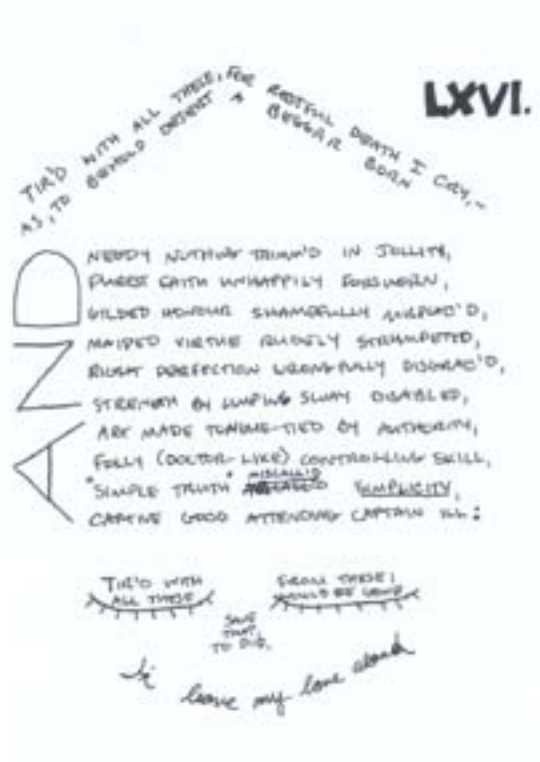 LXVI.
TIR'D WITH ALL THESE, FOR RESTFUL DEATH I CRY,~
AS, TO BEHOLD DESERT A BEGGAR BORN
AND
NEEDY NOTHING TRIMM'D IN JOLLITY,
PUREST FAITH UNHAPPILY FORSWORN,
GILDED HONOUR SHAMEFULLY MISPLAC'D,
MAIDED VIRTUE RUDELY STRUMPETED,
RIGHT PERFECTION WRONGFULLY DISGRAC'D,
STRENGTH BY LIMPING SWAY DISABLED,
ART MADE TONGUE-TIED BY AUTHORITY,
FOLLY (DOCTOR-LIKE) CONTROLLING SKILL,
"SIMPLE TRUTH" MISCALL'D SIMPLICITY,
CAPTIVE GOOD ATTENDING CAPTAIN ILL:
TIR'D WITH
ALL THESE
FROM THESE I
WOULD BE GONE
SAVE
THAT
TO DIE,
I leave my love alone